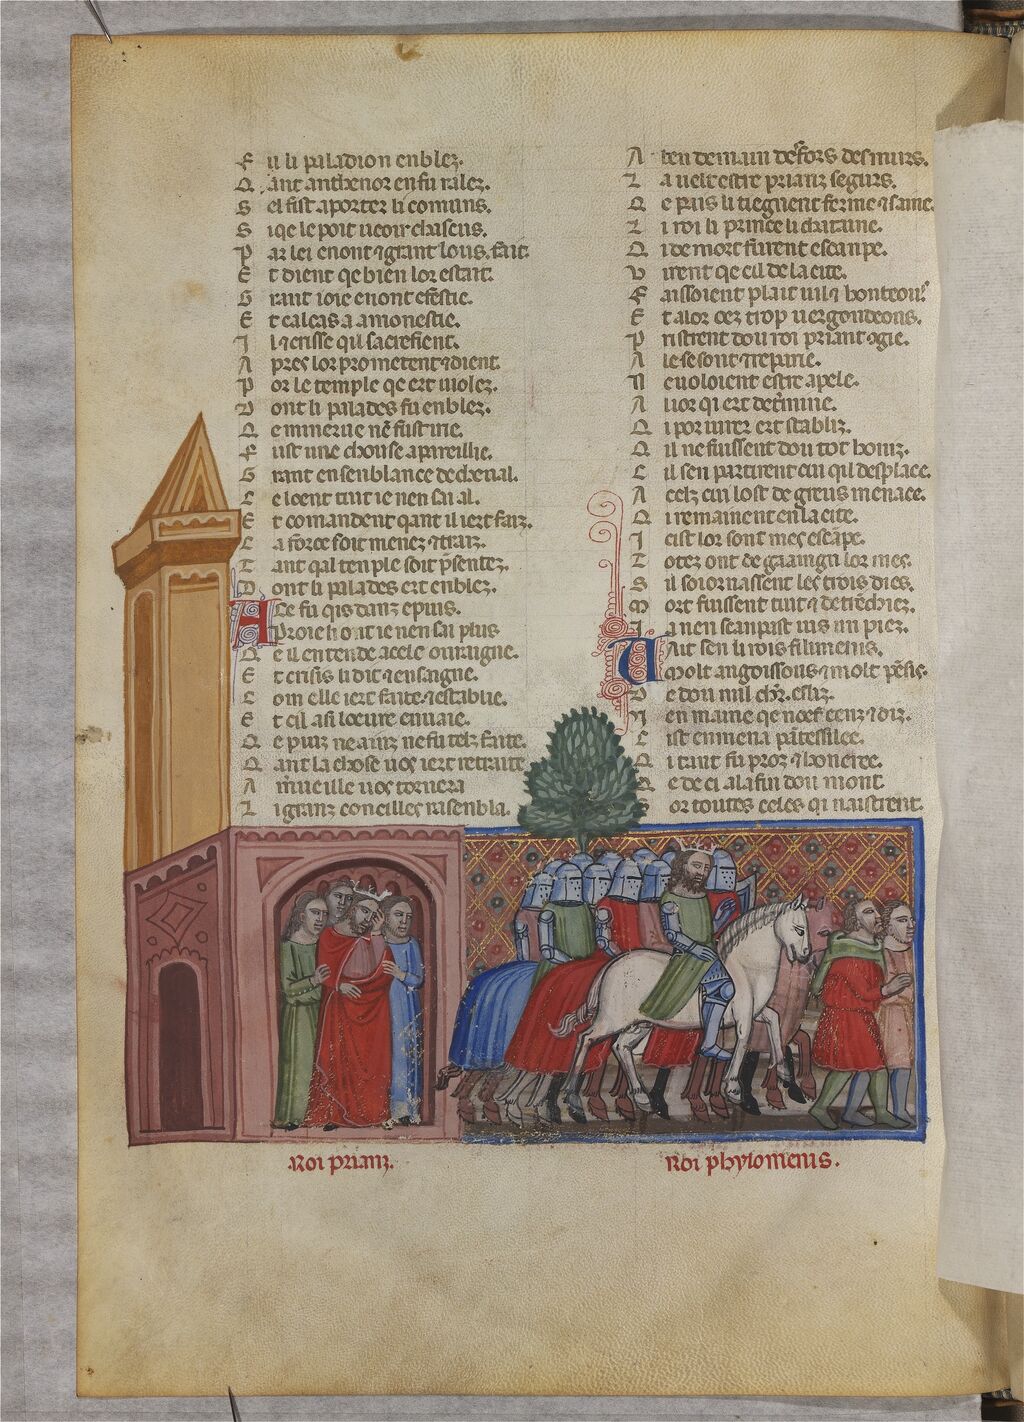 F u li paladion enblez.
Q ant anthenor en fu ralez.
S el fist aporter li comuns.
S i qe le poit ueoir chascuns.
P ar lei en ont ⁊ grant lous fait.
E t dient qe bien lor estait.
G rant ioie en ont
E t calcas a amonestie.
I l ⁊ crisse qu sacrefient.
A pres lor prometent ⁊ dient.
P or le temple qe ert uiolez.
D ont li palades fu enblez.
Q e minerue
F ust une chouse apareillie.
G rant en senblance de cheual.
C e loent tuit ie nen sai al.
E t comandent qant il iert faiz.
C a force soit menez ⁊ traiz.
T ant qal temple soit p̃sentez.
D ont li palades ert enblez.
A Ce fu qis danz epius.
Proieh ont ie nen sai plus
Q e il entende a cele ouraigne.
E t crisis li dit ⁊ ensaigne.
C om elle iert faite ⁊ establie.
E t cil asi loeure enuaie.
Q e puiz ne fu telz faite.
Q ant la chose uos iert retraite
A m̃ueille uos tornera
L i granz conceilles rasenbla.
A ben demain defors des murs.
L a uelt estre prianz segurs.
Q e puis li tiegnent ferme ⁊ saine.
L i roi li prince li chataine.
Q i de mort furent escanpe.
V irent qe cil de la cite.
F aissoient plait uil ⁊ honteous
E t a lor oez trop uergondeous.
P ristrent dou roi priant ⁊gie.
A le se sont
N e uoloient estre apele.
A uor qi ert
Q i por iurer ert stabliz.
Q il ne fuissent dou tot honiz.
C il sen partirent cui qil desplace.
A celz cui lost de greus menace.
Q i remainent en la cite.
I cist lor sont mes escãpe.
T otez ont de gaaingn lor mes.
S il soiornassent les trois dies.
M ort fuissent tuit ⁊ detrẽchiez.
I a nen uns un piez.
V Ait sen li rois filimenis.
Molt angoissous ⁊ molt pẽsis.
D e dou mil chr̃.
N en maine qe noef cenz ⁊ diz.
C ist enmena pãtessilee.
Q i tant fu proz ⁊ honeree.
Q e de ci a la fin dou mont
S or toutes celes qi naistrent
Roi prianz.
Roi phylomenis.